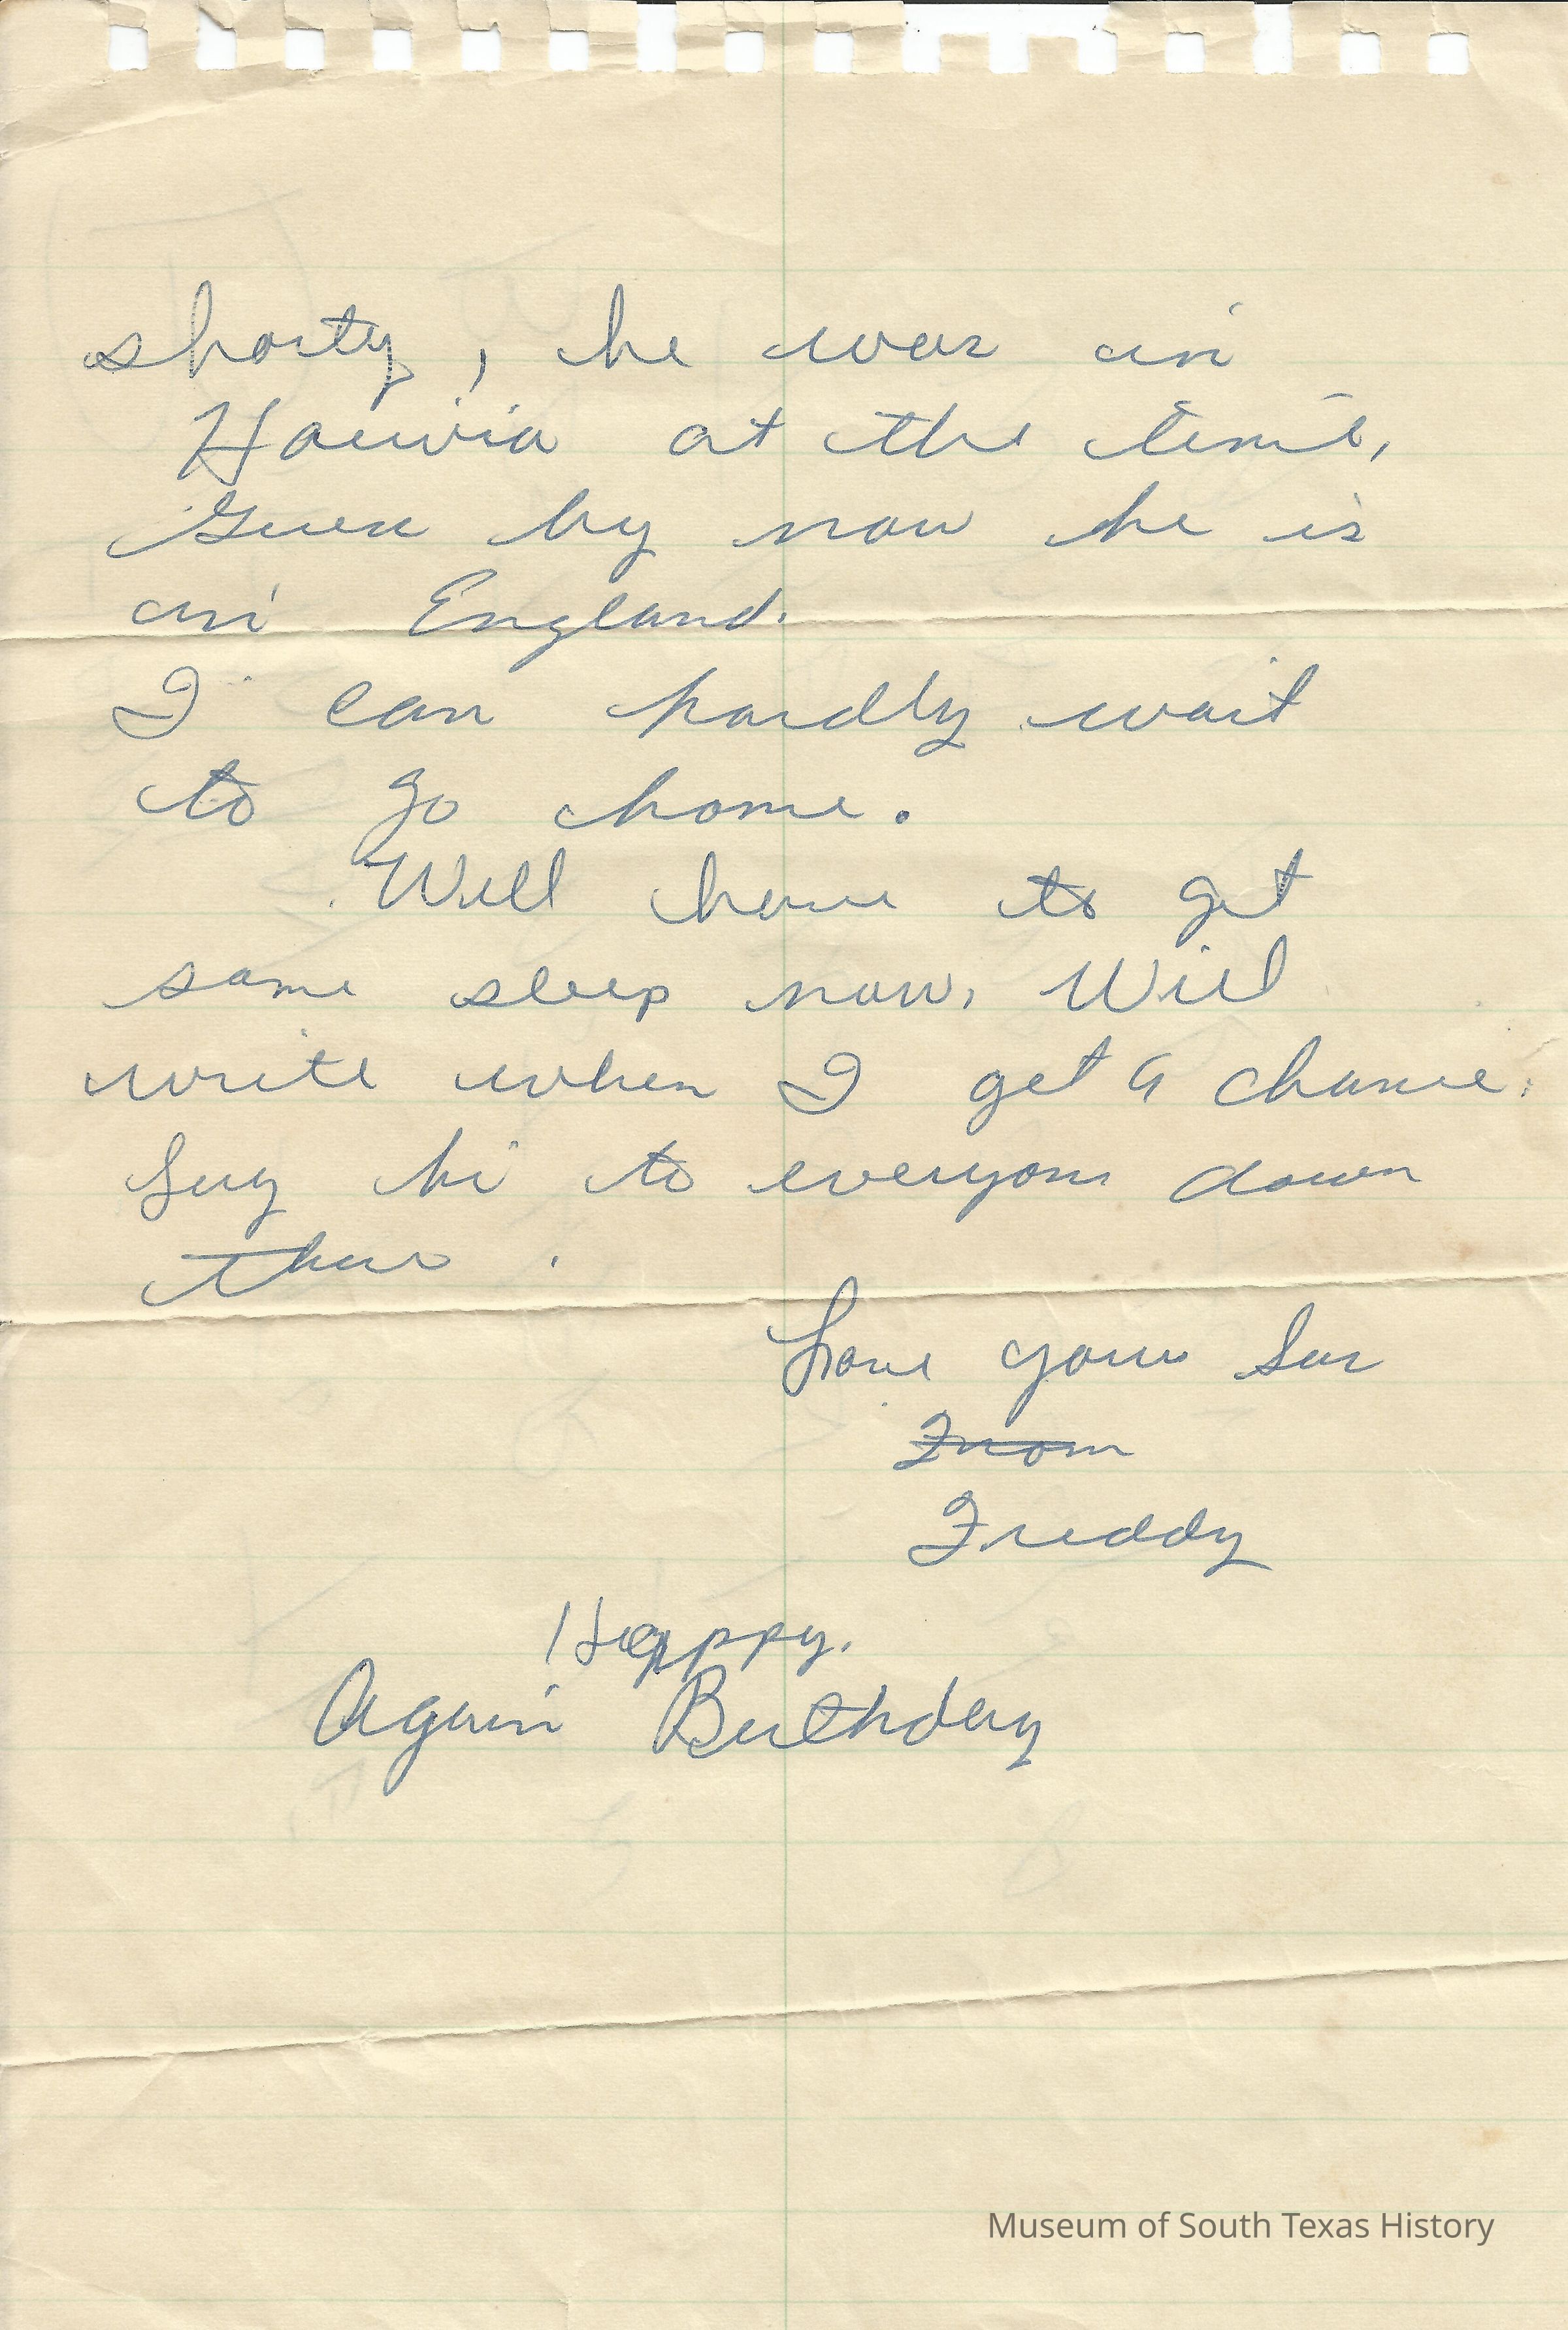 shorty, he was in
Hawia at the time,
Guess by now he is
in England.
I can hardly wait
to go home.
Well have to get
some sleep now, Will
write when I get a chance.
Say hi to everyone down
there.
Love your Son
From
Freddy
Happy.
Again Birthday
Museum of South Texas History